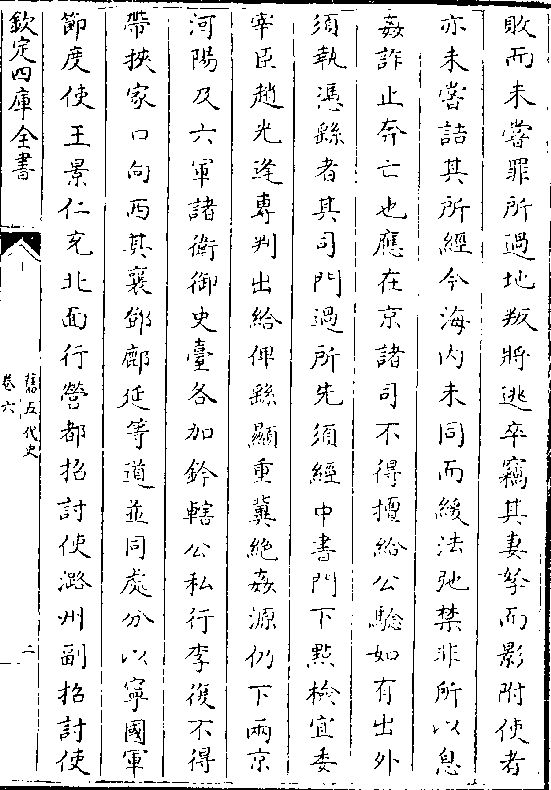 敗而未嘗罪所過地叛將逃卒竊其妻孥而影附使者
亦未嘗詰其所經今海内未同而緩法弛禁非所以息
姦詐止奔亡也應在京諸司不得擅給公驗如有出外
須執憑繇者其司門過所先須經中書門下㸃檢宜委
宰臣趙光逢專判出給俾繇顯重冀絶姦源仍下兩京
河陽及六軍諸衛御史臺各加鈐轄公私行李復不得
帶挾家口向西其襄鄧鄜延等道並同處分以寧國軍
節度使王景仁充北面行營都招討使潞州副招討使
欽定四庫全書
舊五代史
卷六
二